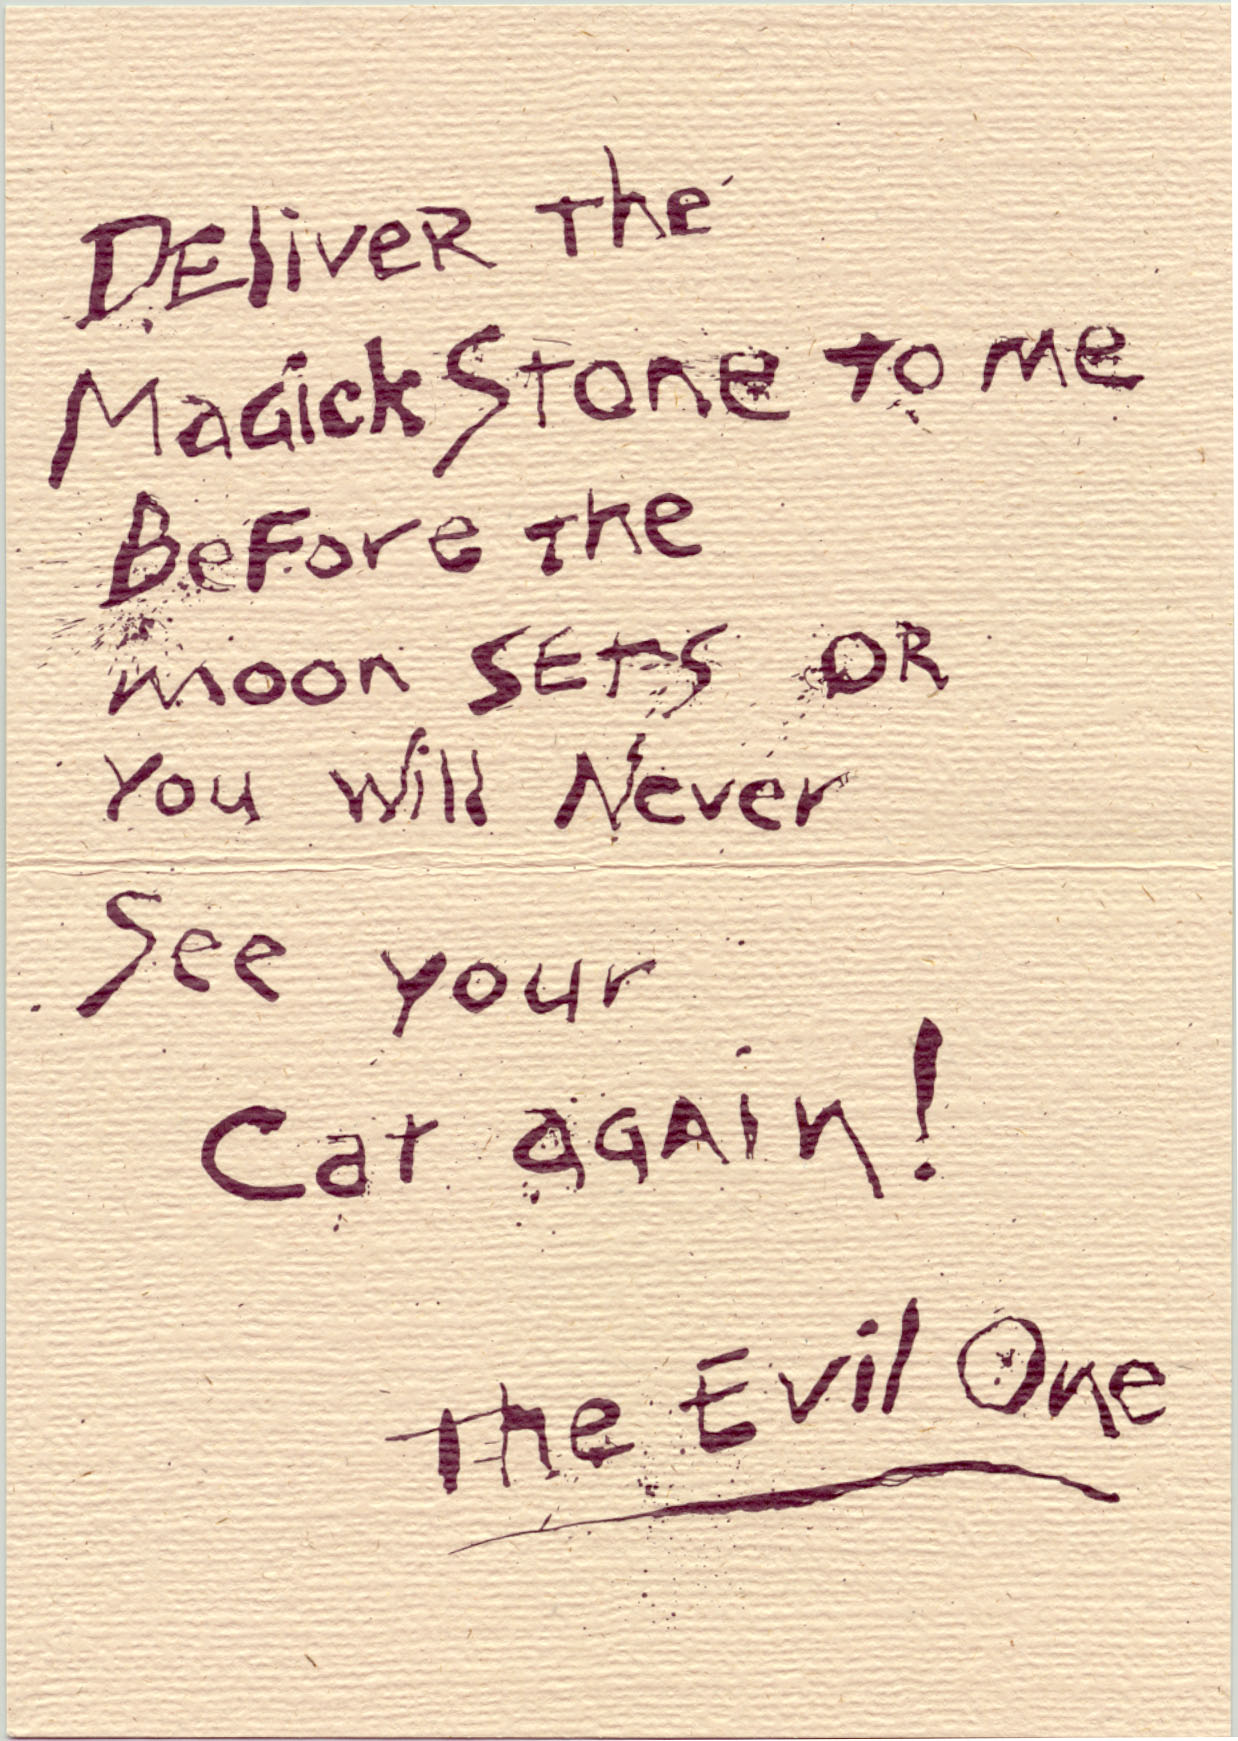 DEliveR the
MaGick Stone to me
BeFore the
moon SEtS OR
You will Never
See your
Cat aGAin!
The Evil One